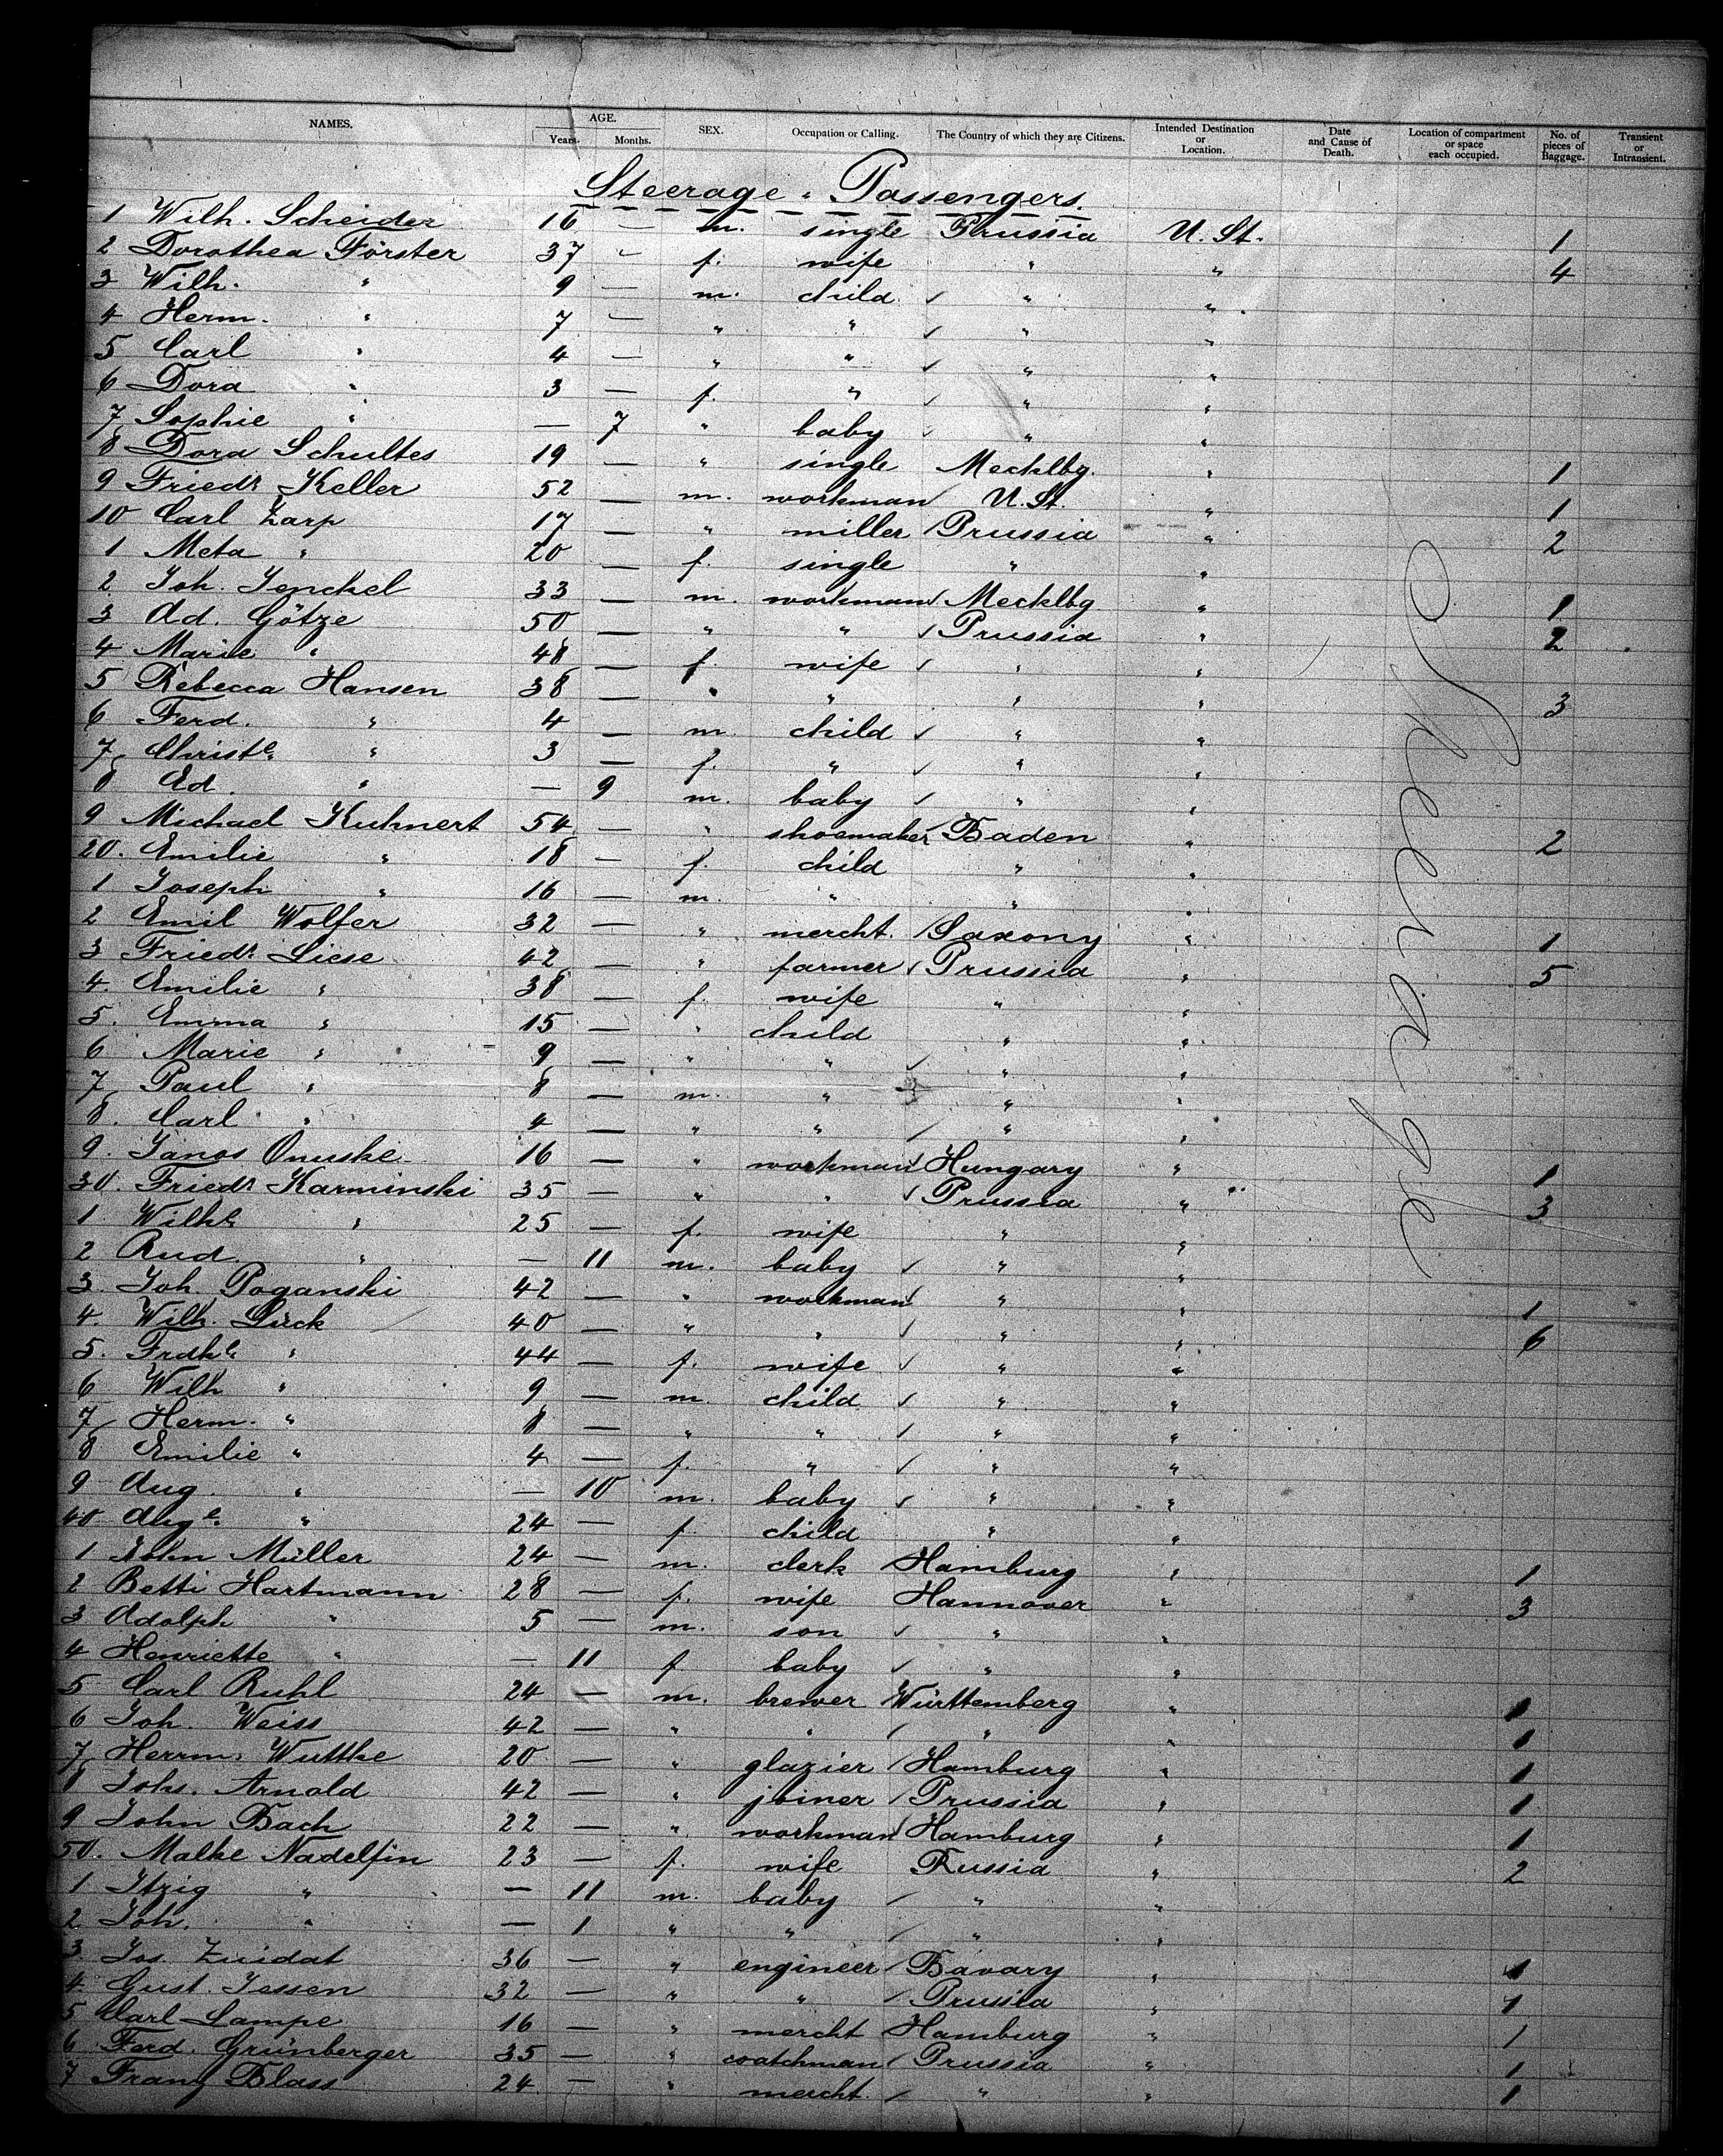 NAMES. AGE. Years. Months. SEX. Occupation or Calling. The Country of which they are Citizens. Intended Destination or Location. Date and Cause of Death. Location of compartment or space each occupied. No. of pieces of Baggage. Transient or Intransient.
Steerage Passengers.
1 Wilh. Scheider 16 — m. single Prussia U. St. 1
2 Dorothea Förster 37 — f. wife " " 4
3 Wilh. " 9 — m. child ✓ " "
4 Herm. " 7 — " " ✓ " "
5 Carl " 4 — " " ✓ " "
6 Dora " 3 — f. " ✓ " "
7 Sophie " — 7 " baby ✓ " "
8 Dora Schultes 19 — " single Mecklbg. " 1
9 Friedr Keller 52 — m. workman ✓ U. St. " 1
10 Carl Zarp 17 — " miller ✓ Prussia " 2
1 Meta " 20 — f. single " "
2 Joh. Jenckel 33 — m. workman ✓ Mecklbg " 1
3 Ad. Götze 50 — " " ✓ Prussia " 2
4 Marie " 48 — f. wife ✓ " "
5 Rebecca Hansen 38 — " " " " 3
6 Ferd. " 4 — m. child ✓ " "
7 Christe " 3 — f. " ✓ " "
8 Ed. " — 9 m. baby ✓ " "
9 Michael Kuhnert 54 — " shoemaker ✓ Baden " 2
20. Emilie " 18 — f. child " "
1 Joseph " 16 — m. " " "
2 Emil Wolfer 32 — " mercht. ✓ Saxony " 1
3 Friedr Liese 42 — " farmer ✓ Prussia " 5
4. Emilie " 38 — f. wife " "
5. Emma " 15 — " child " "
6 Marie " 9 — " " ✓ " "
7 Paul " 8 — m. " " "
8. Carl " 4 — " " ✓ " "
9. Janos Onuske 16 — " workman ✓ Hungary " 1
30. Friedr Karminski 35 — " " ✓ Prussia " 3
1 Wilhe " 25 — f. wife " "
2 Rud. " — 11 m. baby ✓ " "
3. Joh. Poganski 42 — " workman ✓ " " 1
4. Wilh. Lück 40 — " " ✓ " " 6
5. Frdke " 44 — f. wife ✓ " "
6 Wilh " 9 — m. child ✓ " "
7 Herm. " 8 — " " ✓ " "
8 Emilie " 4 — f. " ✓ " "
9 Aug. " — 10 m. baby ✓ " "
40 Auge " 24 — f. child " "
1 John Müller 24 — m. clerk Hamburg " 1
2 Betti Hartmann 28 — f. wife Hannover " 3
3 Adolph " 5 — m. son ✓ " "
4 Henriette " — 11 f baby ✓ " "
5 Carl Ruhl 24 — m. brewer Württemberg " 1
6 Joh. Weiss 42 — " " ✓ " " 1
7 Herrm. Wuttke 20 — " glazier ✓ Hamburg " 1
8 Johs. Arnold 42 — " joiner ✓ Prussia " 1
9 John Bach 22 — " workman ✓ Hamburg " 1
50. Malke Nadelfin 23 — f. wife Russia " 2
1 Itzig " — 11 m. baby ✓ " "
2 Joh. " — 1 " " ✓ " "
3. Jos. Zuidat 36 — " engineer ✓ Bavary " 1
4. Gust. Jessen 32 — " " ✓ Prussia " 1
5 Carl Lampe 16 — " mercht Hamburg " 1
6 Ferd. Grünberger 35 — " watchman ✓ Prussia " 1
7 Franz Blass 24 — " mercht. ✓ " " 1
Steerage